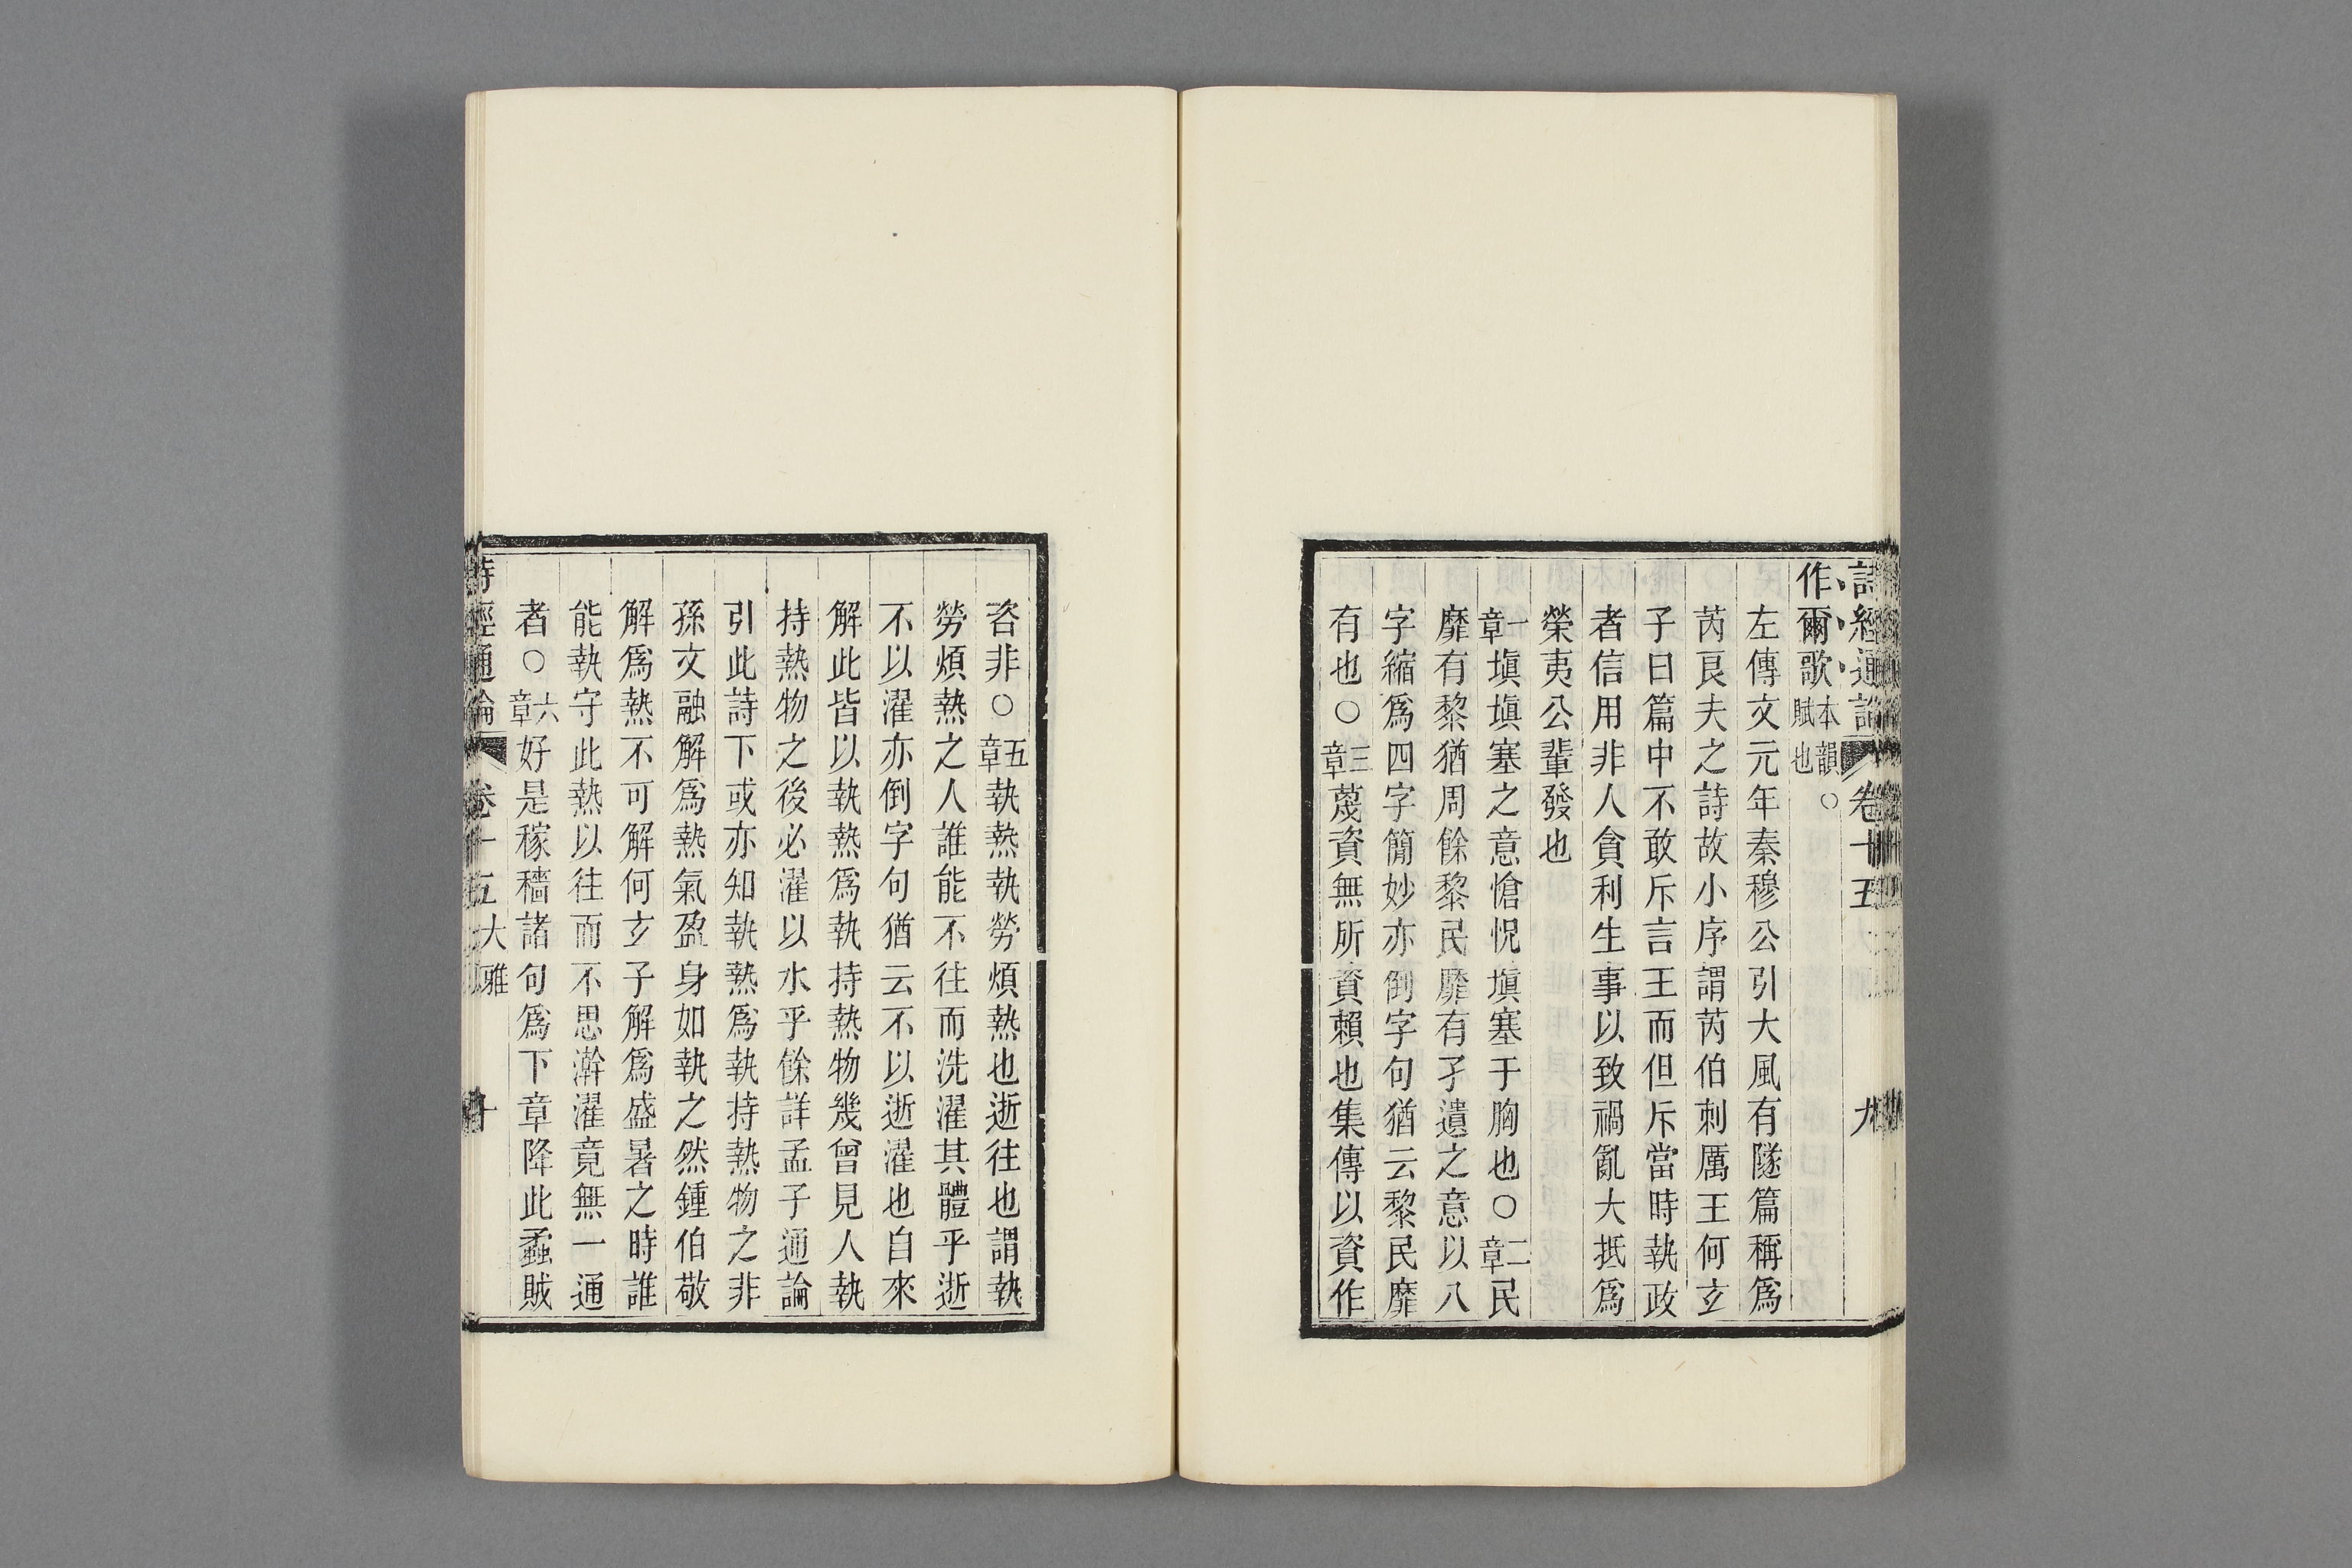 詩經通論 卷十五 九
作爾歌本韻○賦也
左傳文元年秦穆公引大風有隧篇稱爲
芮良夫之詩故小序謂芮伯刺厲王何玄
子曰篇中不敢斥言王而但斥當時執政
者信用非人貪利生事以致禍亂大抵爲
榮夷公輩發也
一章塡塡塞之意愴怳塡塞于胸也○二章民
靡有黎猶周餘黎民靡有孑遺之意以八
字縮爲四字簡妙亦倒字句猶云黎民靡
有也○三章蔑資無所資賴也集傳以資作
咨非○五章執熱執勞煩熱也逝往也謂執
勞煩熱之人誰能不往而洗濯其體乎逝
不以濯亦倒字句猶云不以逝濯也自來
解此皆以執熱爲執持熱物幾曾見人執
持熱物之後必濯以水乎餘詳孟子通論
引此詩下或亦知執熱爲執持熱物之非
孫文融解爲熱氣盈身如執之然鍾伯敬
解爲熱不可解何玄子解爲盛暑之時誰
能執守此熱以往而不思澣濯竟無一通
者○六章好是稼穡諸句爲下章降此蟊賊
詩經通論 卷十五大雅 十